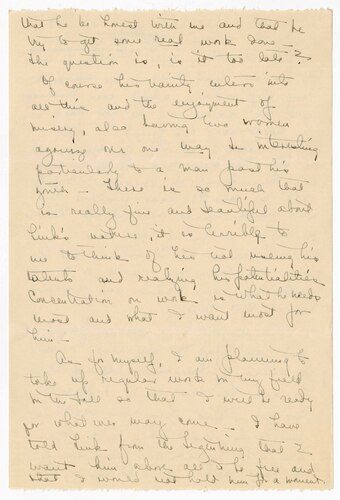 that he be honest with me and that he
try to get some real work done -
The question is, is it too late?
Of course his vanity enters into
all this and the enjoyment of
misery, also having two women
agonize over one may be interesting
particularly to a man past his
youth - There is so much that
is really fine and beautiful about
Link's nature, it is terrible to
me to think of his not using his
talents and realizing his potentialities
Concentration on work is what he needs
most and what I want most for
him -
As for myself, I am planning to
take up regular work in my field
in the fall so that I will be ready
for whatever may come - I have
told Link from the beginning that I
want him above all to be free and
that I would not hold him for a moment